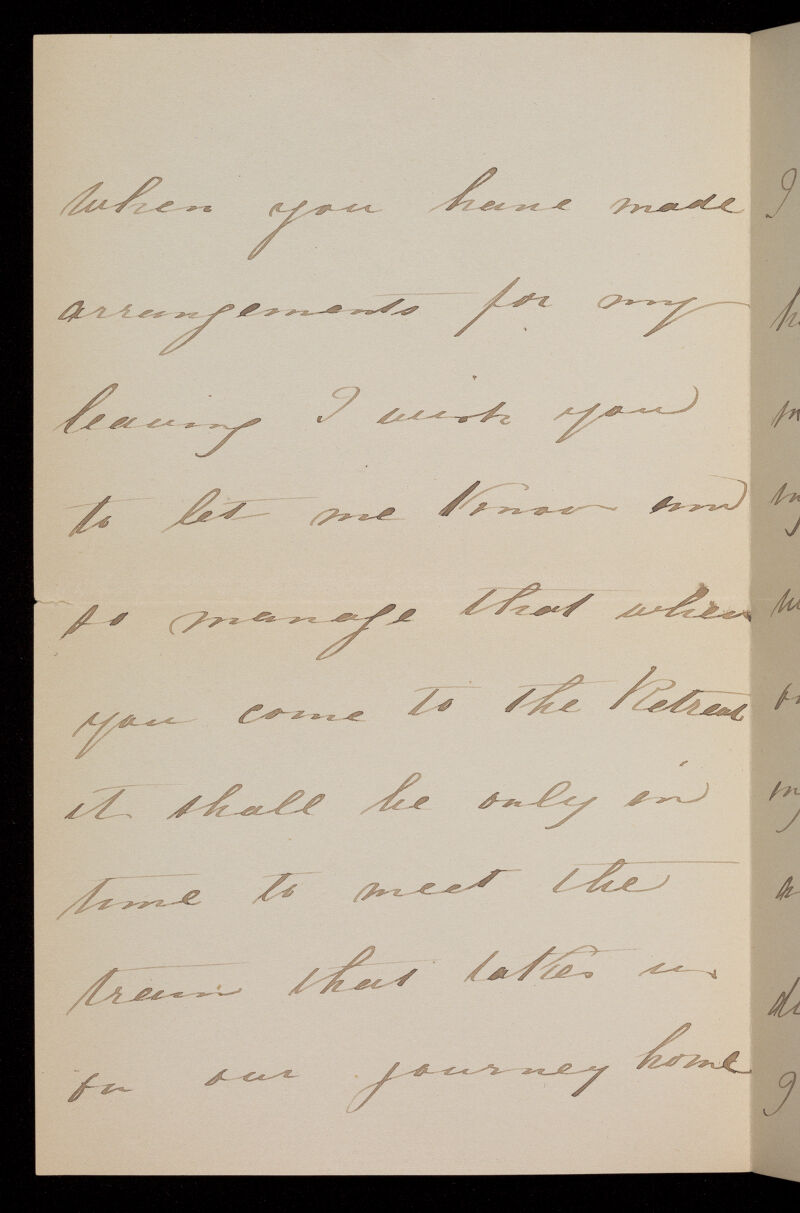 When you have made
arrangements for my
leaving I wish you
to let me know and
so manage that when
you come to the Retreat
it shall be only in
time to meet the
train that takes us
on our journey home